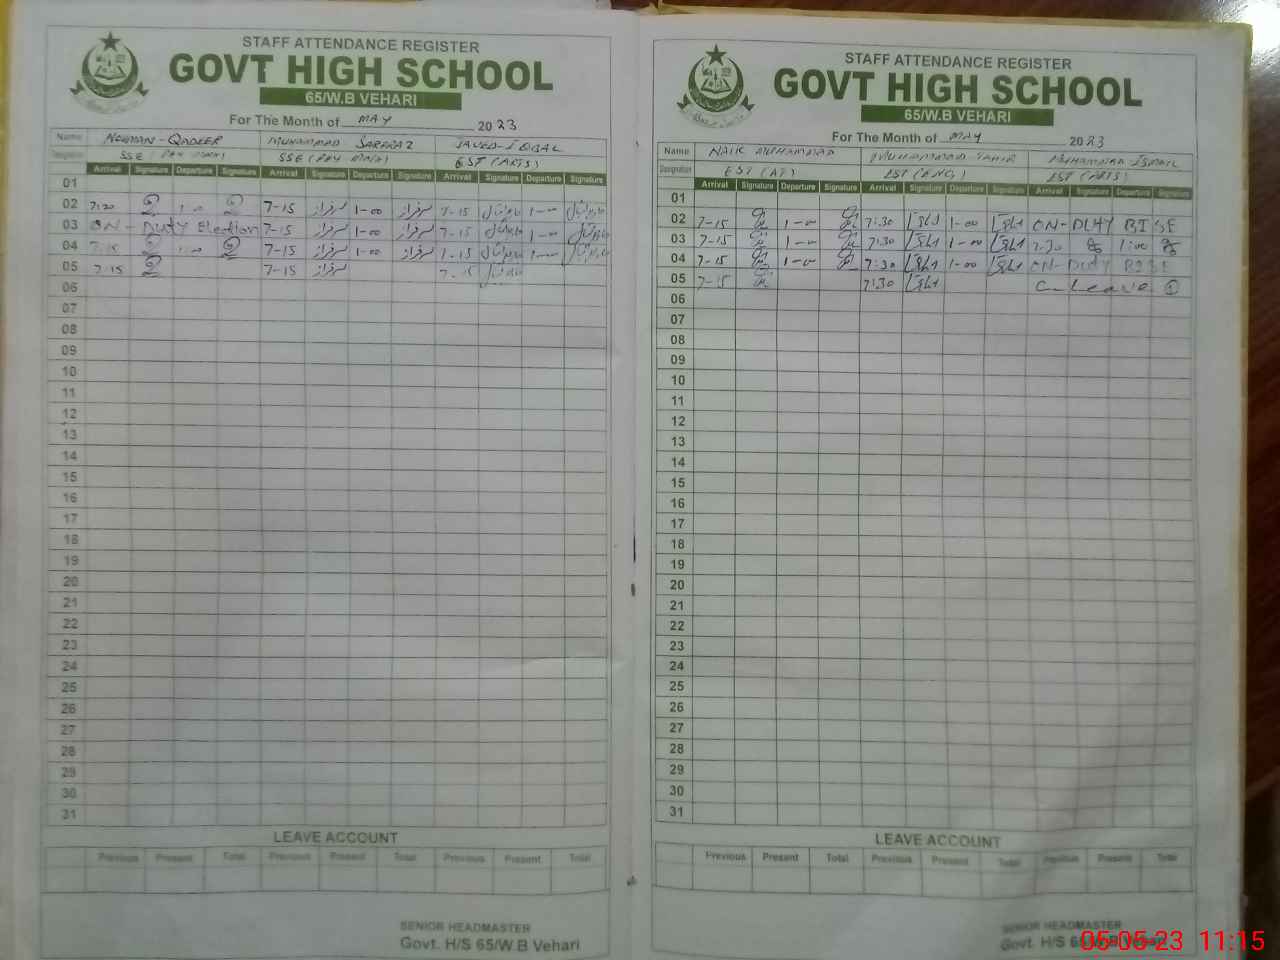 STAFF ATTENDANCE REGISTER
GOVT HIGH SCHOOL
65/W.B VEHARI
For The Month of MAY 2023
Name NOUMAN-QADEER MUHAMMAD SARFRAZ JAVED IQBAL
Designation SSE (PHY MATH) SSE (PHY MATH) EST (ARTS)
Arrival Signature Departure Signature Arrival Signature Departure Signature Arrival Signature Departure Signature
01
02 7:20 1-00 7-15 سرفراز 1-00 سرفراز 7-15 جاوید اقبال 1-00 جاوید اقبال
03 ON-Duty Election 7-15 سرفراز 1-00 سرفراز 7-15 جاوید اقبال 1-00 جاوید اقبال
04 7:15 1-00 7-15 سرفراز 1-00 سرفراز 7-15 جاوید اقبال 1-00 جاوید اقبال
05 7:15 7-15 سرفراز 7-15 جاوید اقبال
06
07
08
09
10
11
12
13
14
15
16
17
18
19
20
21
22
23
24
25
26
27
28
29
30
31
LEAVE ACCOUNT
Previous Present Total Previous Present Total Previous Present Total
SENIOR HEADMASTER
Govt. H/S 65/W.B Vehari
STAFF ATTENDANCE REGISTER
GOVT HIGH SCHOOL
65/W.B VEHARI
For The Month of MAY 2023
Name NAIK MUHAMMAD MUHAMMAD TAHIR MUHAMMAD ISMAIL
Designation EST (AT) EST (ENG) EST (ARTS)
Arrival Signature Departure Signature Arrival Signature Departure Signature Arrival Signature Departure Signature
01
02 7-15 1-00 7:30 1-00 ON-DUTY BISE
03 7-15 1-00 7:30 1-00 7:30 1:00
04 7-15 1-00 7:30 1-00 ON-DUTY BISE
05 7-15 7:30 C-Leave ①
06
07
08
09
10
11
12
13
14
15
16
17
18
19
20
21
22
23
24
25
26
27
28
29
30
31
LEAVE ACCOUNT
Previous Present Total Previous Present Total Previous Present Total
SENIOR HEADMASTER
Govt. H/S 65/W.B Vehari
05-05-23 11:15